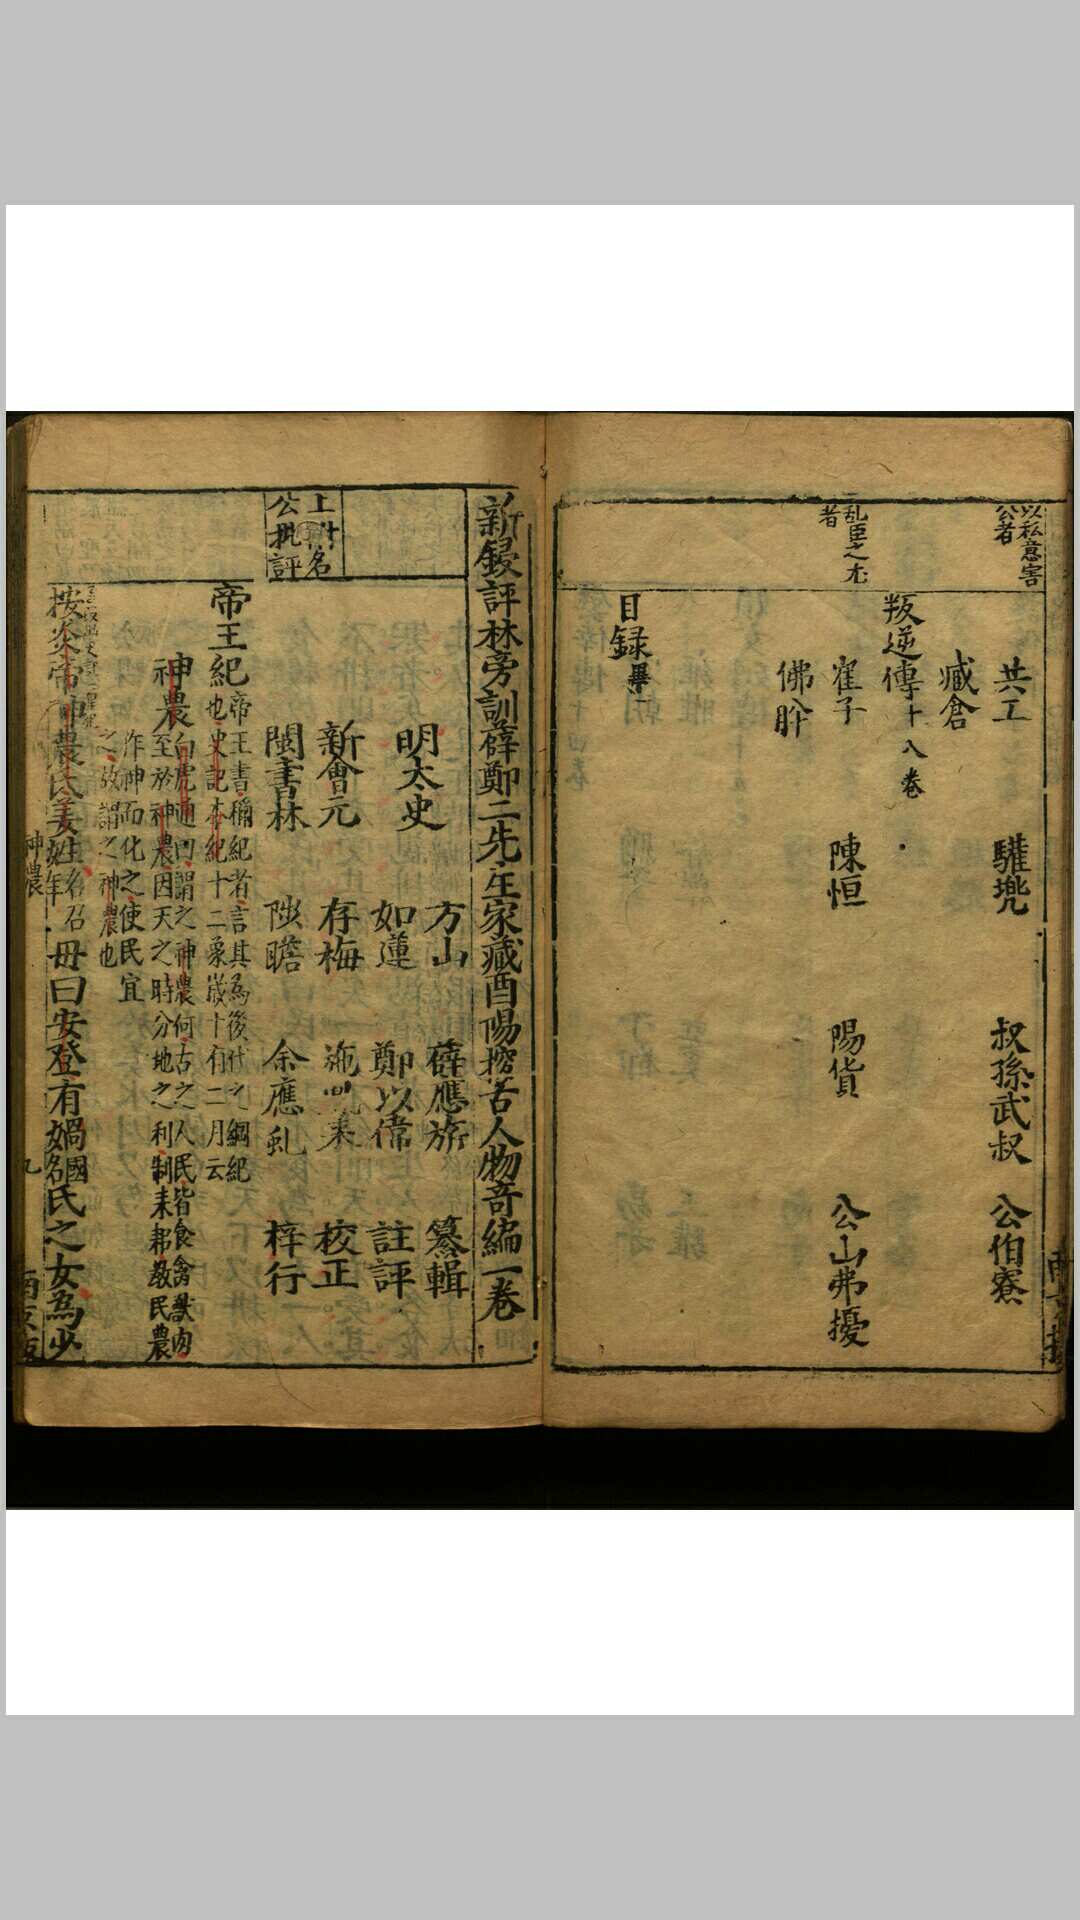 以私意害
公者
共工
驩兠
叔孫武叔
公伯寮
臧倉
叛逆傳十八卷
乱臣之尤
者
崔子
陳恒
陽貨
公山弗擾
佛肸
目録畢
新鋟評林旁訓薛鄭二先生家藏酉陽搜古人物奇編一卷
明太史
方山
薛應旂
纂輯
如蓮
鄭以偉
註評
新會元
存梅
校正
閩書林
余應虬
梓行
上附名
公批評
帝王紀
帝王書稱紀者言其為後代之綱紀
也史記本紀十二象歲十有二月云
神農
白虎通曰謂之神農何古之人民皆食禽獸肉
神農
至於神農因天之時分地之利制耒耜教民農
作神而化之使民宜
之故謂之神農也
按炎帝神農氏姜姓名召
母曰安登有媧國名氏之女為少
神農
九